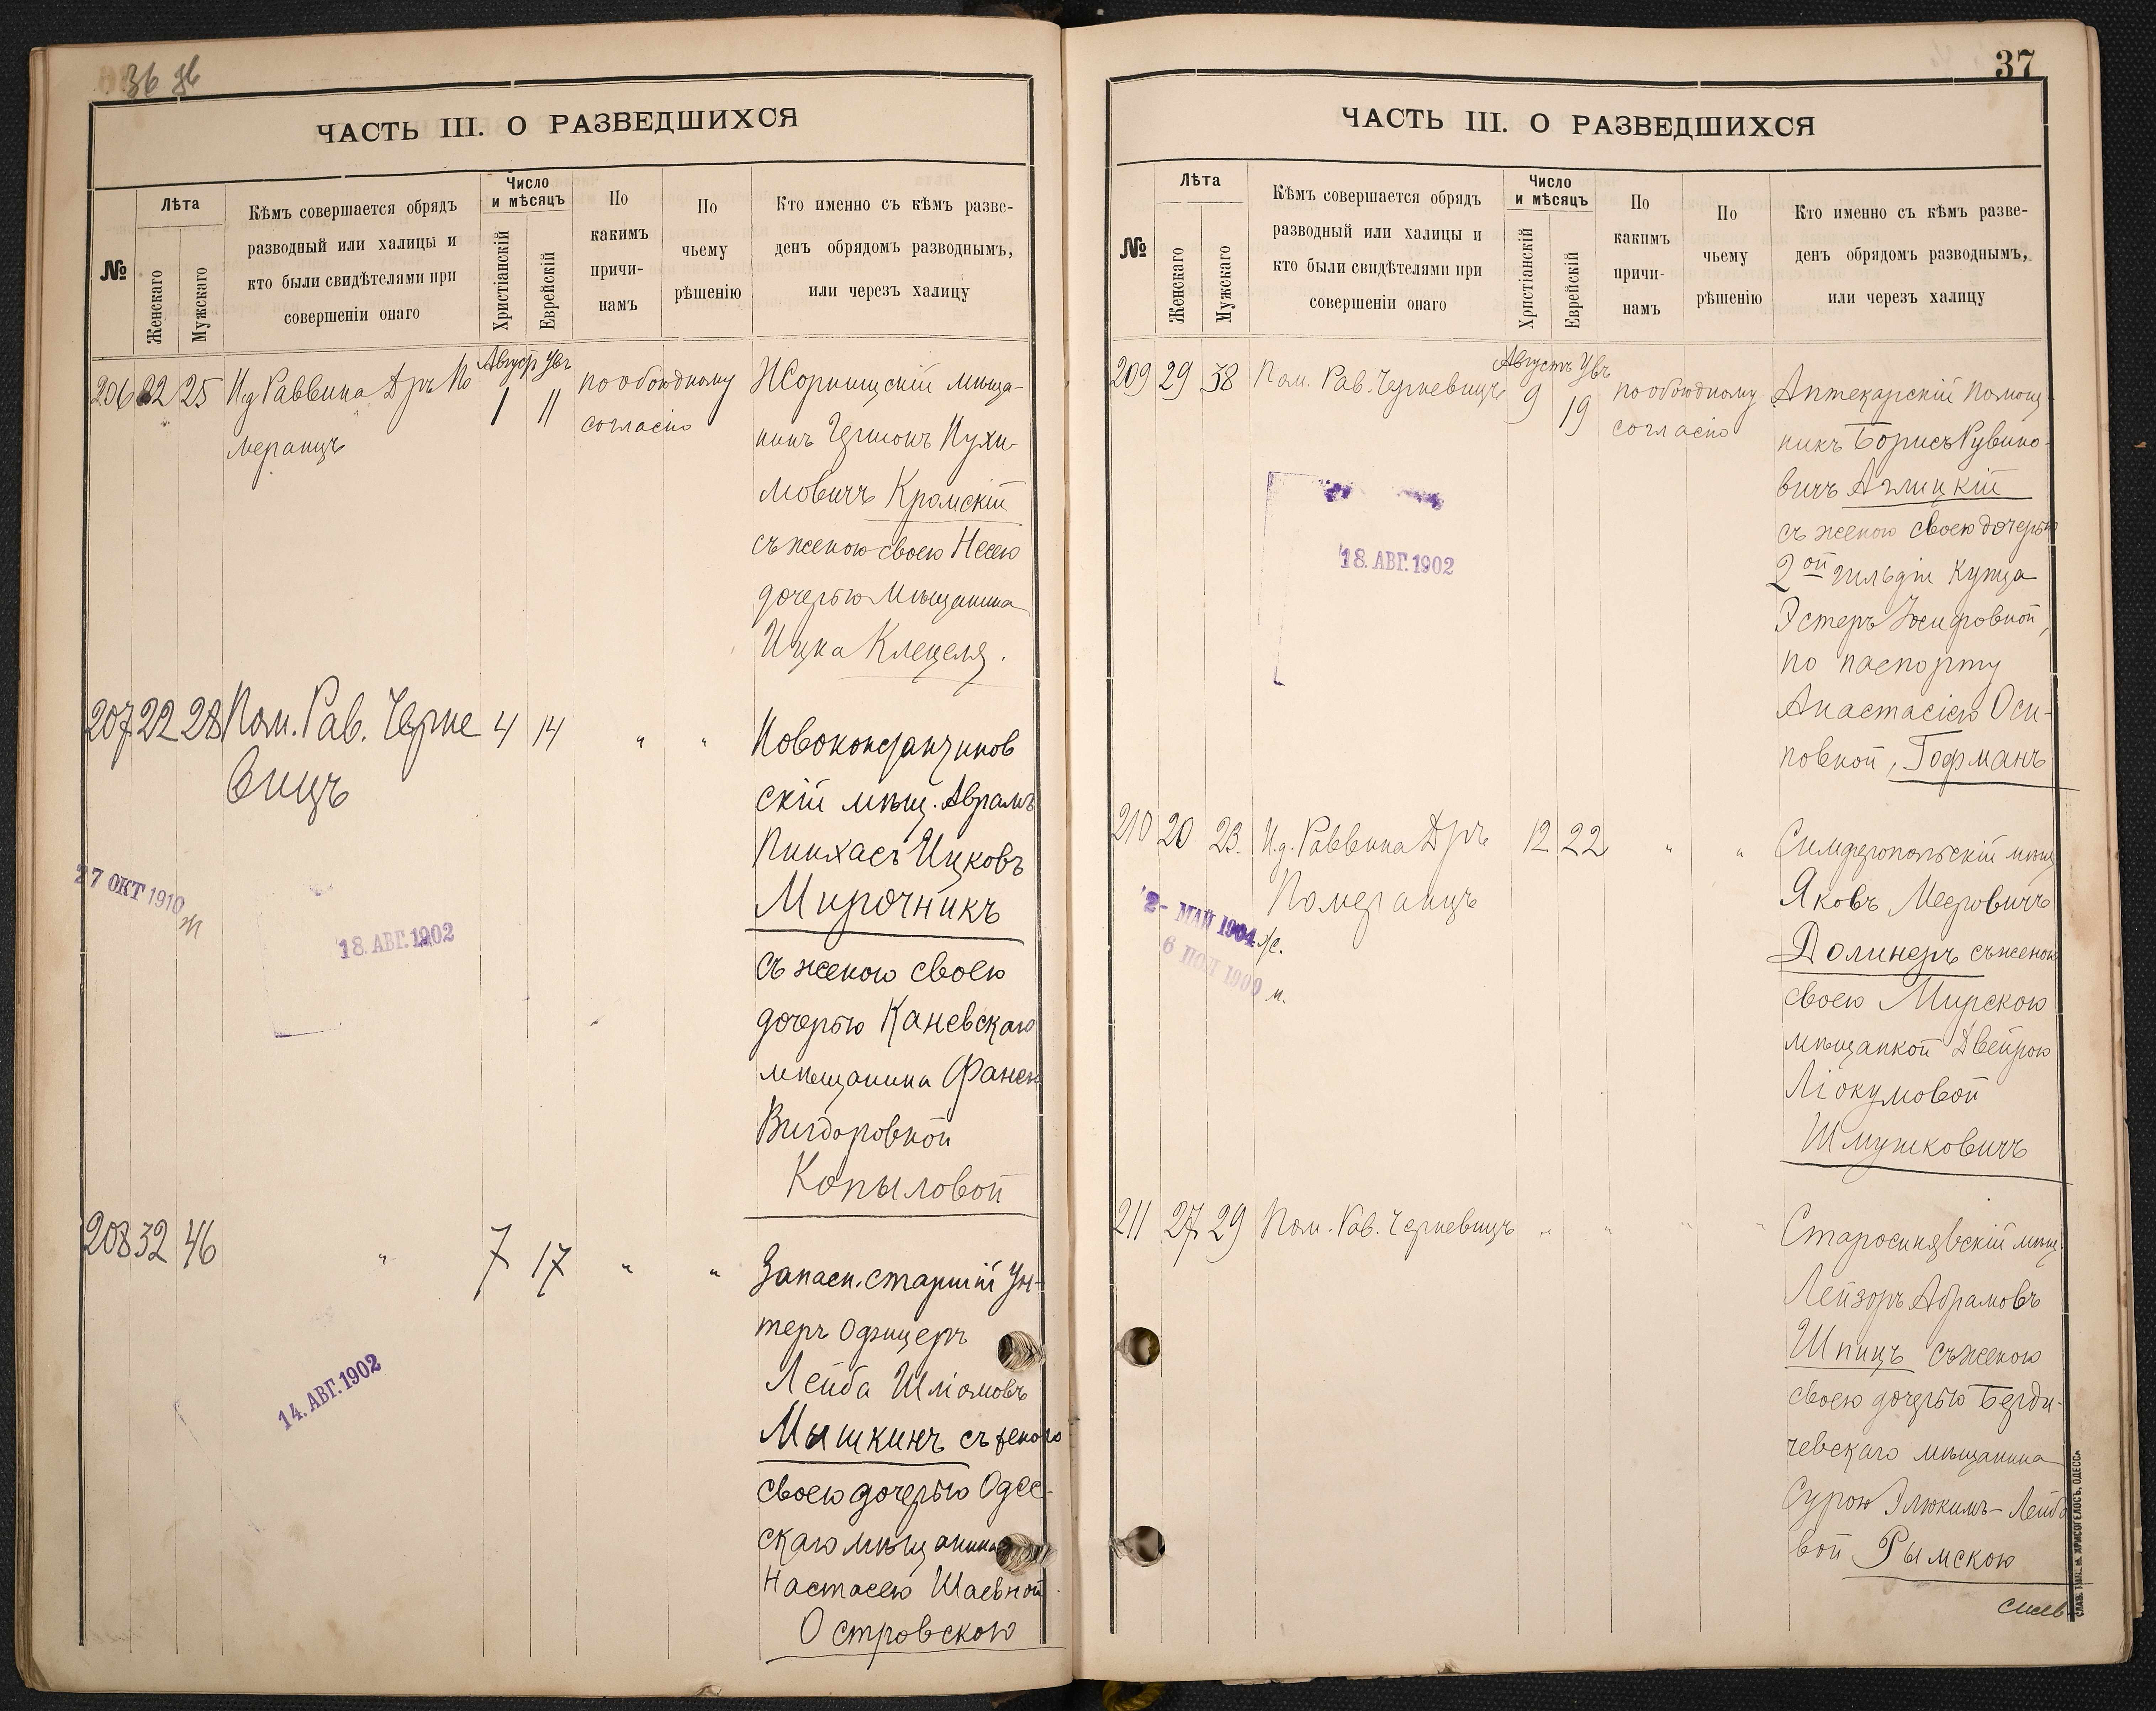 36 об
ЧАСТЬ III. О РАЗВЕДШИХСЯ
№
Лѣта
Женскаго
Мужскаго
Кѣмъ совершается обрядъ
разводный или халицы и
кто были свидѣтелями при
совершеніи онаго
Число
и мѣсяцъ
Христіанскій
Еврейскій
По
какимъ
причи-
намъ
По
чьему
рѣшенію
Кто именно съ кѣмъ разве-
денъ обрядомъ разводнымъ,
или черезъ халицу
206 22 25 И.д Раввина Дръ По
меранцъ
Август Увъ
1 11
по обоюдному
согласію
мѣща-
нинъ Гершонъ Нухи-
мовичъ Кромскій
съ женою своею Несею
дочерью Мѣщанина
Ицка Клецеля.
207 22 28 Пом. Рав. Черне 4 14 " "
вицъ
Новоконстантинов
скій мѣщ. Аврамъ
Пинхасъ Ицковъ
Мирочникъ
съ женою своею
дочерью Каневскаго
мѣщанина Фанею
Вигдоровной
Копыловой
27 ОКТ 1910
18. АВГ. 1902
208 32 46 " 7 17 " "
Запасн. старшій Ун-
теръ Офицеръ
Лейба Шліомовъ
Мышкинъ съ женою
своею дочерью Одес-
скаго мѣщанина
Настасею Шаевной
Островскою
14. АВГ. 1902
37
ЧАСТЬ III. О РАЗВЕДШИХСЯ
№
Лѣта
Женскаго
Мужскаго
Кѣмъ совершается обрядъ
разводный или халицы и
кто были свидѣтелями при
совершеніи онаго
Число
и мѣсяцъ
Христіанскій
Еврейскій
По
какимъ
причи-
намъ
По
чьему
рѣшенію
Кто именно съ кѣмъ разве-
денъ обрядомъ разводнымъ,
или черезъ халицу
209 29 38 Пом. Рав. Черневицъ
Августъ Увъ
9 19
по обоюдному
согласію
Аптекарскій Помощ-
никъ Борисъ Рувино-
вичъ Аглицкій
съ женою своею дочерью
2ой гильдіи Купца
Эстеръ Іосифовной,
по паспорту
Анастасіею Оси-
повной, Гофманъ
18. АВГ. 1902
210 20 23. И.д. Раввина Дръ 12 22 " "
Померанцъ
Симферопольскій мѣщ
Яковъ Мееровичъ
Долинеръ съ женою
своею Мирскою
мѣщанкой Двейрою
Ліокумовой
Шмушковичъ
2- МАЙ 1904 ж.
1909 м.
211 27 29 Пом. Рав. Черневицъ " " " "
Старосинявскій мѣщ.
Лейзоръ Абрамовъ
Шпицъ съ женою
своею дочерью Берди-
чевскаго мѣщанина
Сурою Элюкимъ-Лейбо
вой Рымскою
СЛАВ. ТИП. Н. ХРИСОГЕЛОСЪ, ОДЕССА